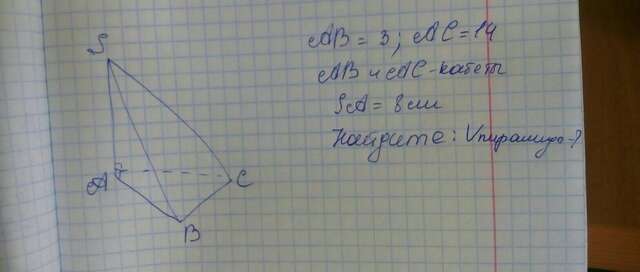 AB = 3; AC = 14
AB и AC - катеты
SA = 8 см
Найдите: Vпирамиды - ?
S
A
C
B